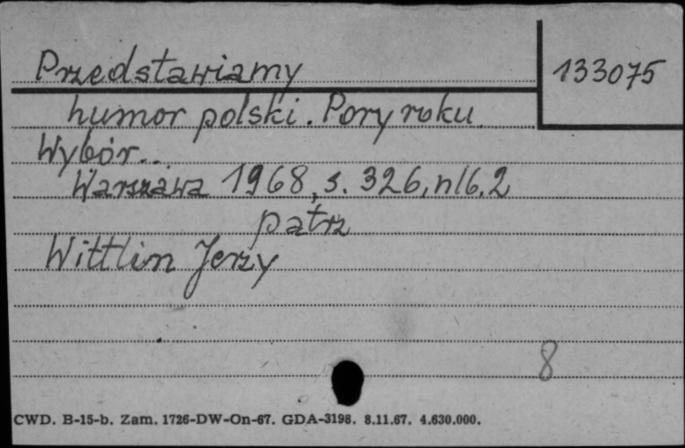 Przedstawiamy 133075
humor polski. Pory roku
Wybór...
Warszawa 1968, s. 326, nlb. 2
patrz
Wittlin Jerzy
8
CWD. B-15-b. Zam. 1726-DW-On-67. GDA-3198. 8.11.67. 4.630.000.